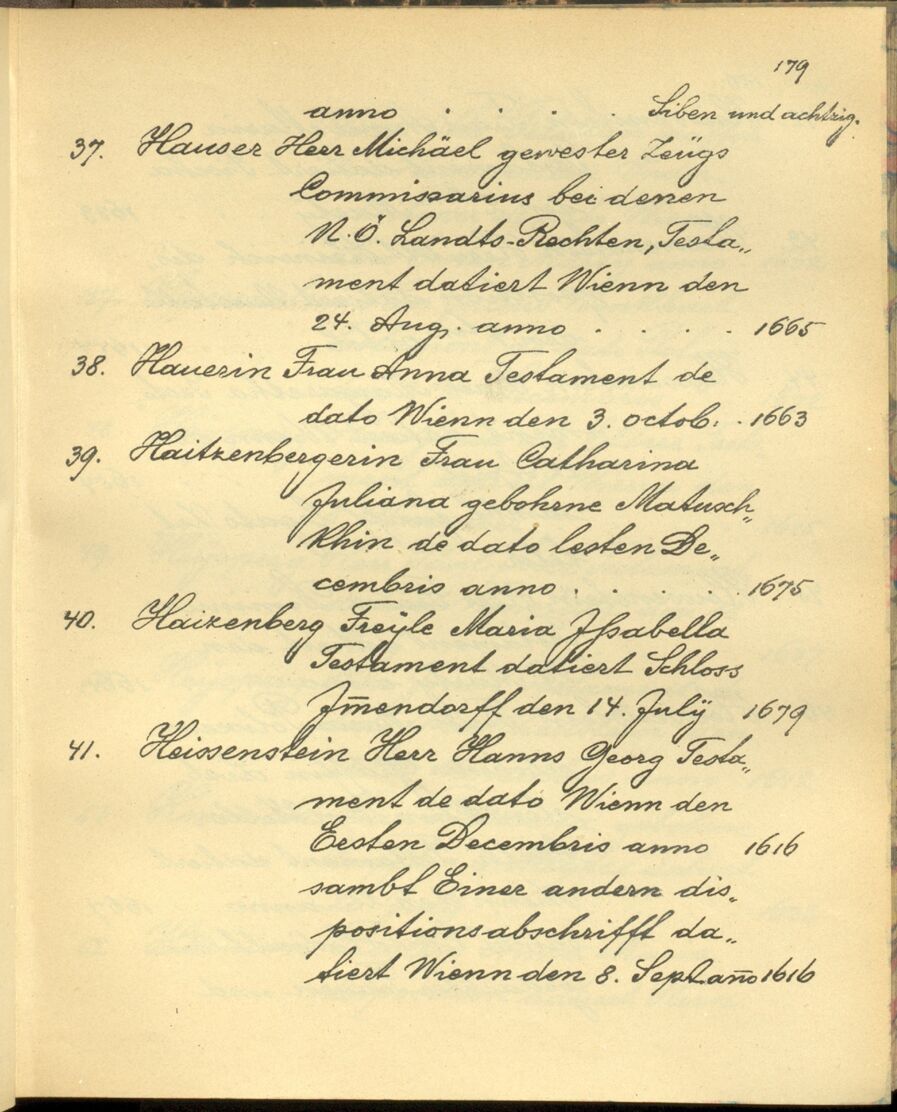 179
anno . . . . Siben und achtzig.
37. Hauser Herr Michäel gewester Zeügs
Commissarius bei denen
N.Ö. Landts-Rechten, Testa„
ment datiert Wienn den
24. Aug. anno . . . . 1665
38. Hauerin Frau Anna Testament de
dato Wienn den 3. octob. . 1663
39. Haitzenbergerin Frau Catharina
Juliana gebohrne Matusch„
khin de dato lesten De„
cembris anno . . . . . 1675
40. Haizenberg Freÿle Maria Jssabella
Testament datiert Schloss
Jm̅endorff den 14. Julÿ 1679
41. Heissenstein Herr Hanns Georg Testa„
ment de dato Wienn den
Ersten Decembris anno 1616
sambt Einer andern dis„
positionsabschrifft da„
tiert Wienn den 8. Sept. an̅o 1616